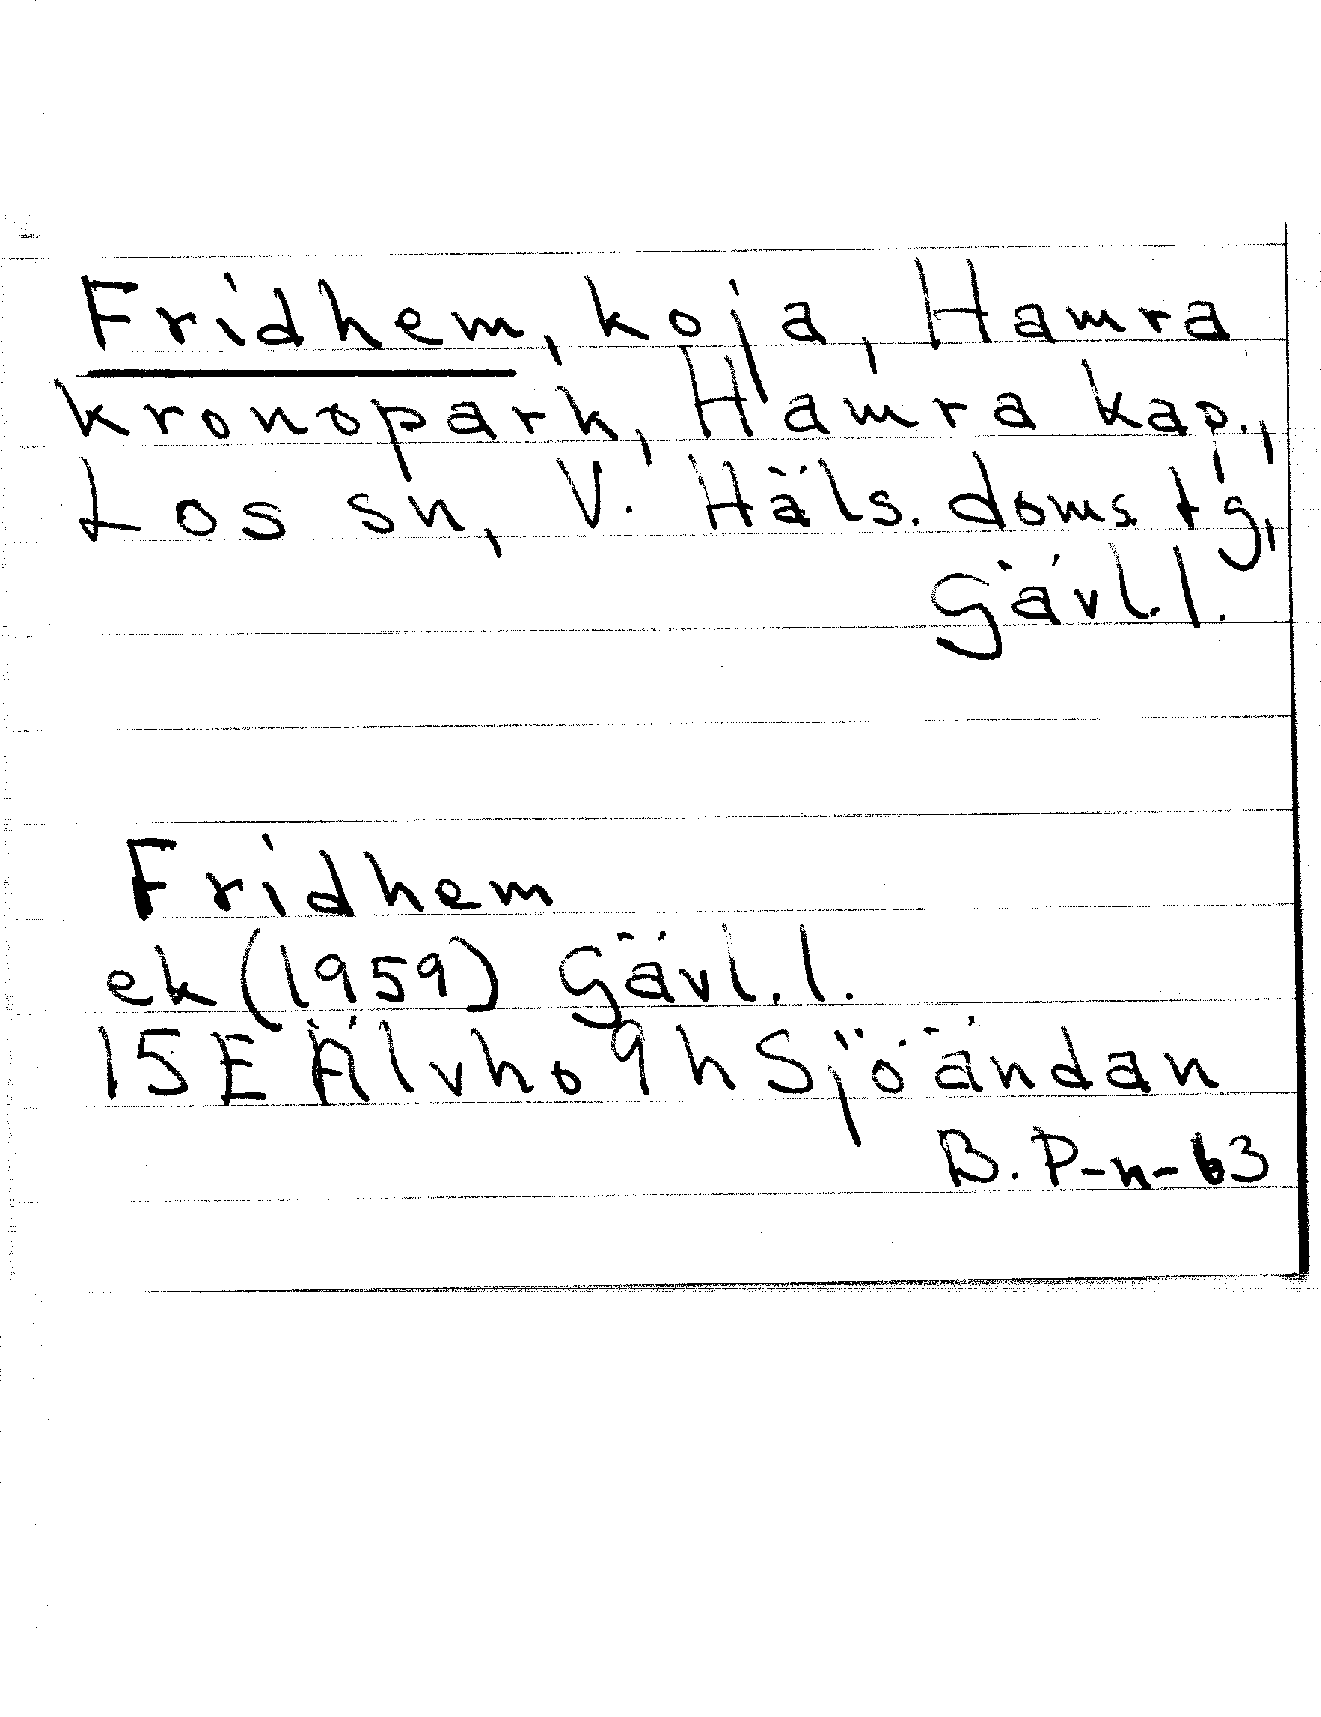 Fridhem, koja, Hamra
kronopark, Hamra kap.,
Los sn, V. Häls. doms. tg,
Gävl. l.
Fridhem
ek (1959) Gävl. l.
15E Älvho 9h Sjöändan
B. P-n-63